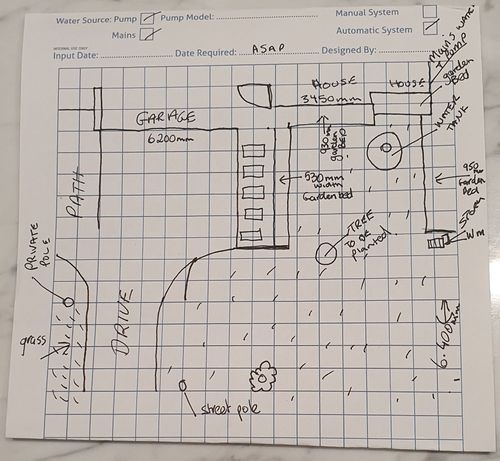 Water Source: Pump
Pump Model:
Manual System
Mains
Automatic System
INTERNAL USE ONLY
Input Date:
Date Required: ASAP
Designed By:
HOUSE
3450mm
HOUSE
garden
Bed
GARAGE
6200mm
WATER
TANK
930mm
garden
BED
PATH
530mm
width
Gardenbed
950mm
Garden
Bed
TREE
TO BE
planted
Wm
PRIVATE
POLE
DRIVE
grass
6.400mm
street pole